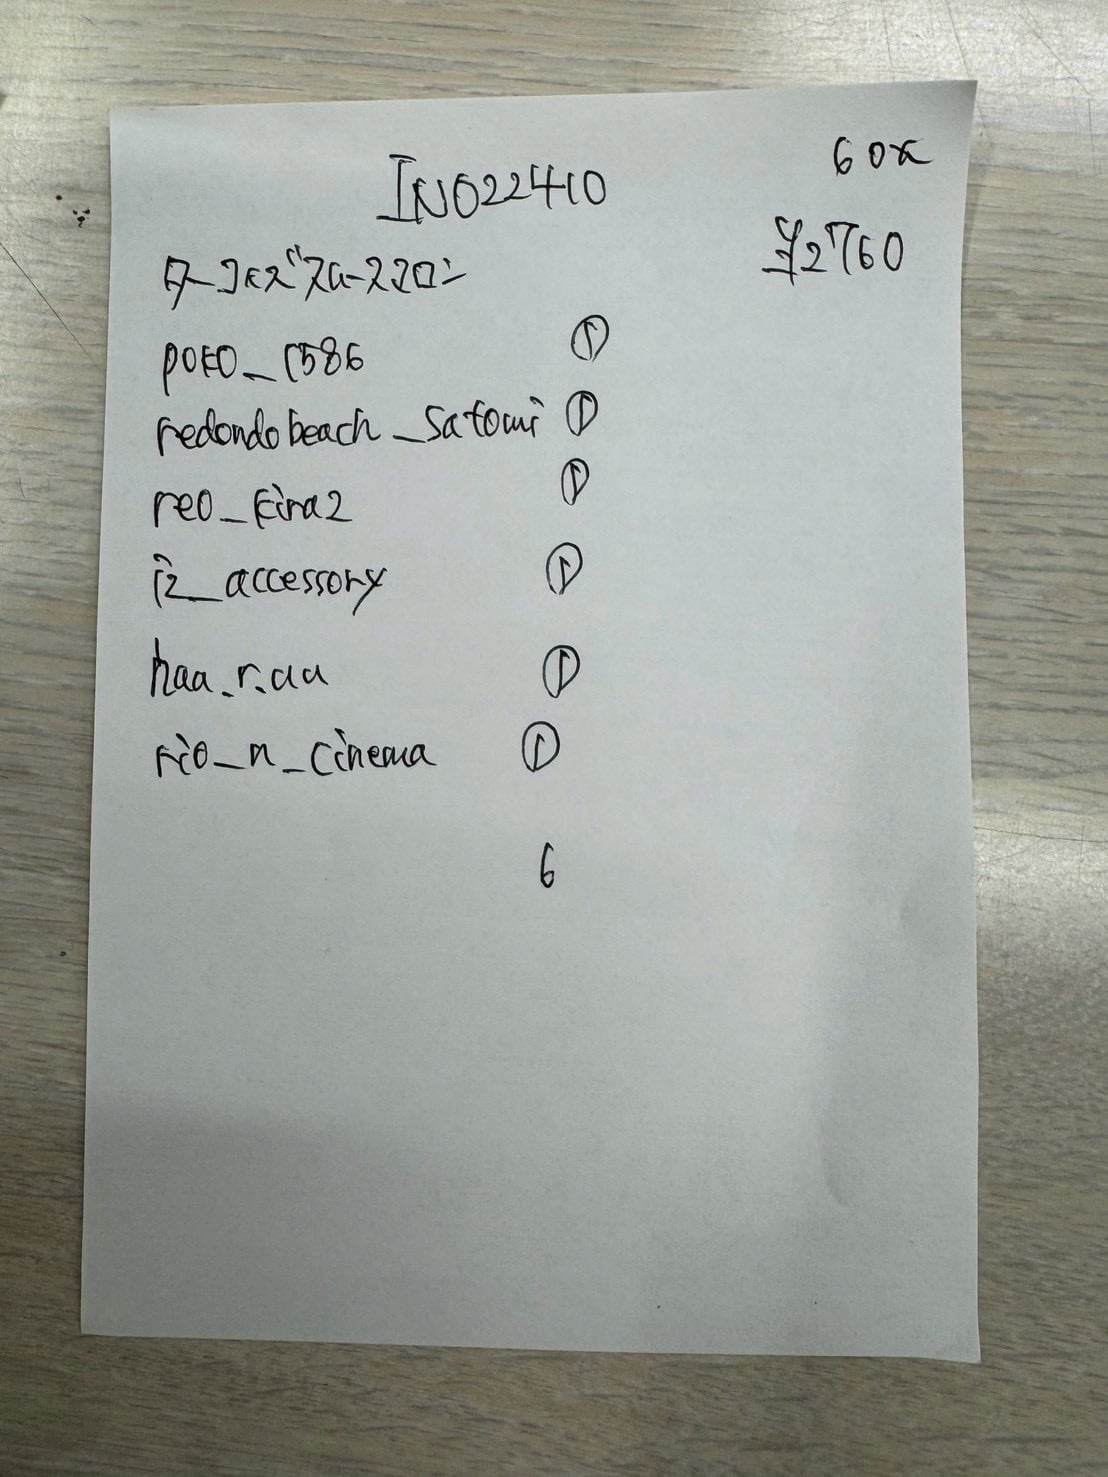 INO22410
60x
¥2760
poko_1586
redondobeach_satomi ①
reo_kira2 ①
iz_accessory ①
haa.r.aa ①
rio_n_cinema ①
6